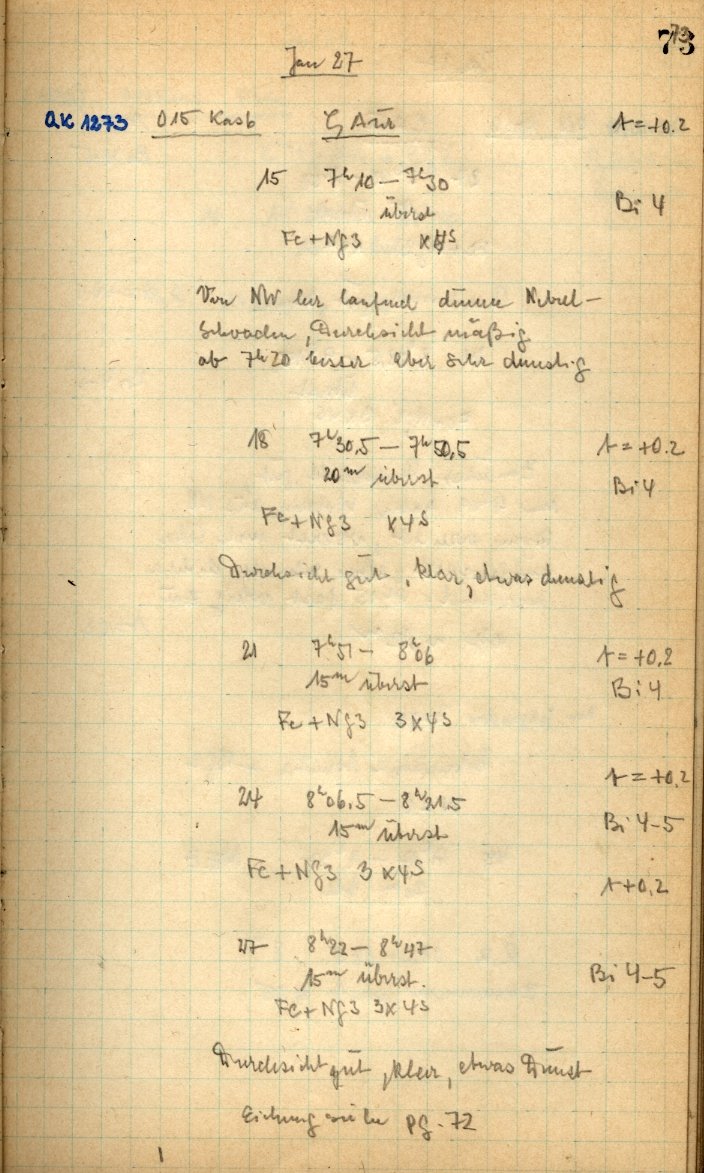 73
Jan 27
QK 1273 015 Kasb ζ Aur A=+0.2
15 7h10 – 7h30
überst Bi 4
Fe+Ng3 x4s
Von NW her laufend dünne Nebel-
schwaden, Durchsicht mäßig
ab 7h20 besser aber sehr dunstig
18 7h30,5 – 7h50,5 A=+0.2
20m überst Bi4
Fe+Ng3 x4s
Durchsicht gut, klar, etwas dunstig
21 7h51 – 8h06 A=+0,2
15m überst Bi4
Fe+Ng3 3x4s
A=+0.2
24 8h06.5 – 8h21.5
15m überst Bi 4-5
Fe+Ng3 3x4s
A+0,2
27 8h22 – 8h47
15m überst. Bi 4-5
Fe+Ng3 3x4s
Durchsicht gut, klar, etwas Dunst
Eichung siehe pg. 72